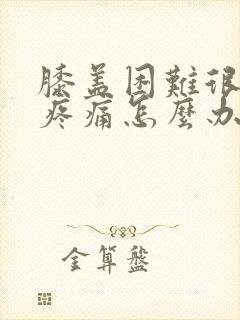 膝盖困難很
疼痛怎麼办
金算盤